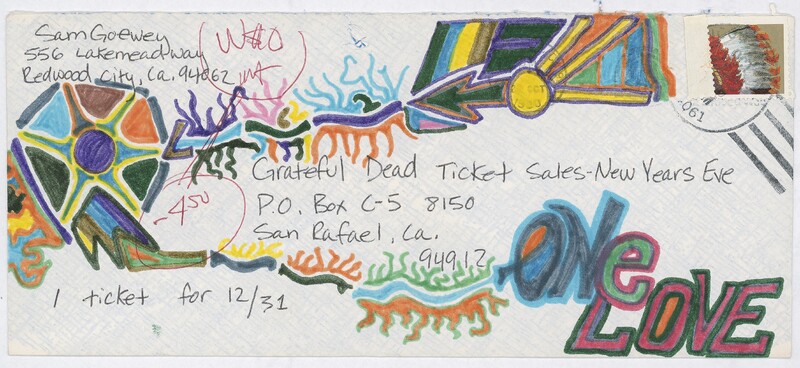 Sam Goewey
556 Lakemead Way
Redwood City, Ca. 94062
W#0
INT
-4 50
Grateful Dead Ticket Sales-New Years Eve
P.O. Box C-5 8150
San Rafael, Ca.
94912
1 ticket for 12/31
ONe
LOVE